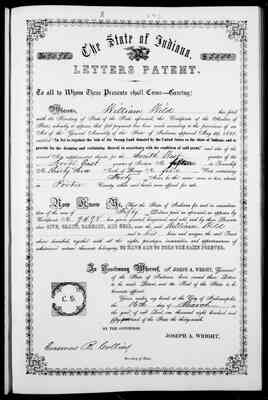 The State of Indiana.
LETTERS PATENT.
To all to Whom These Presents shall Come—Greeting:
Whereas, William Wild has filed
with the Secretary of State of the State aforesaid, the Certificate of the Auditor of
State, whereby it appears that full payment has been made according to the provisions of an
Act of the General Assembly of the State of Indiana, approved May
entitled "An Act to regulate the sale of the Swamp Lands donated by the United States to the State of Indiana, and to
provide for the draining and reclaiming thereof in accordance with the condition of said grant,"
South East quarter of the
North East quarter of Section No. fifteen in Township
No. Thirty three of Range No. five West containing
Forty
Porter County
Now Know Ye, That the State of Indiana for and in consideration
of the sum of Fifty Dollars
Certificate No.
GIVE, GRANT, BARGAIN, AND SELL, unto the said William Wild
and to his heirs and assigns the said Tract
above described, together with all the rights, privileges, immunities, and appurtenances of
whatsoever nature thereunto belonging, TO HAVE AND TO HOLD THE SAME FOREVER.
In Testimony Whereof, I, JOSEPH A. WRIGHT, Governor
of the State of Indiana, have caused these Letters
to be made Patent, and the Seal of the State to be
hereunto affixed.
L. S.
Given under my hand at the City of Indianapolis,
the 16th day of March in
the year of our Lord one thousand eight hundred and
and of the State the
BY THE GOVERNOR:
JOSEPH A. WRIGHT.
Erasmus B. Collins
Secretary of State.